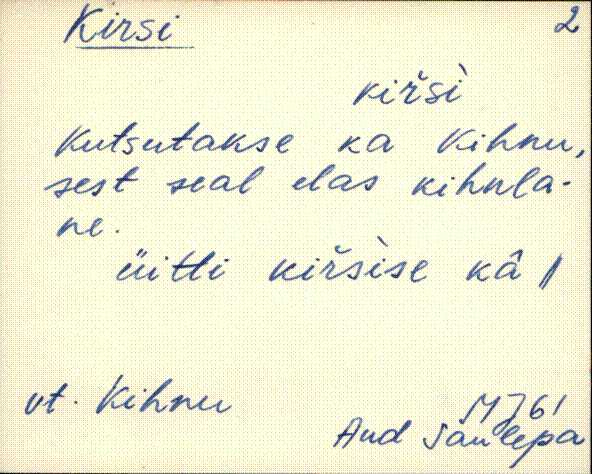 Kirsi 2
kiřsì
Kutsutakse ka Kihnu,
sest seal elas kihnla-
ne.
üitti kiřsìse kâ //
vt. Kihnu
Aud Saulepa